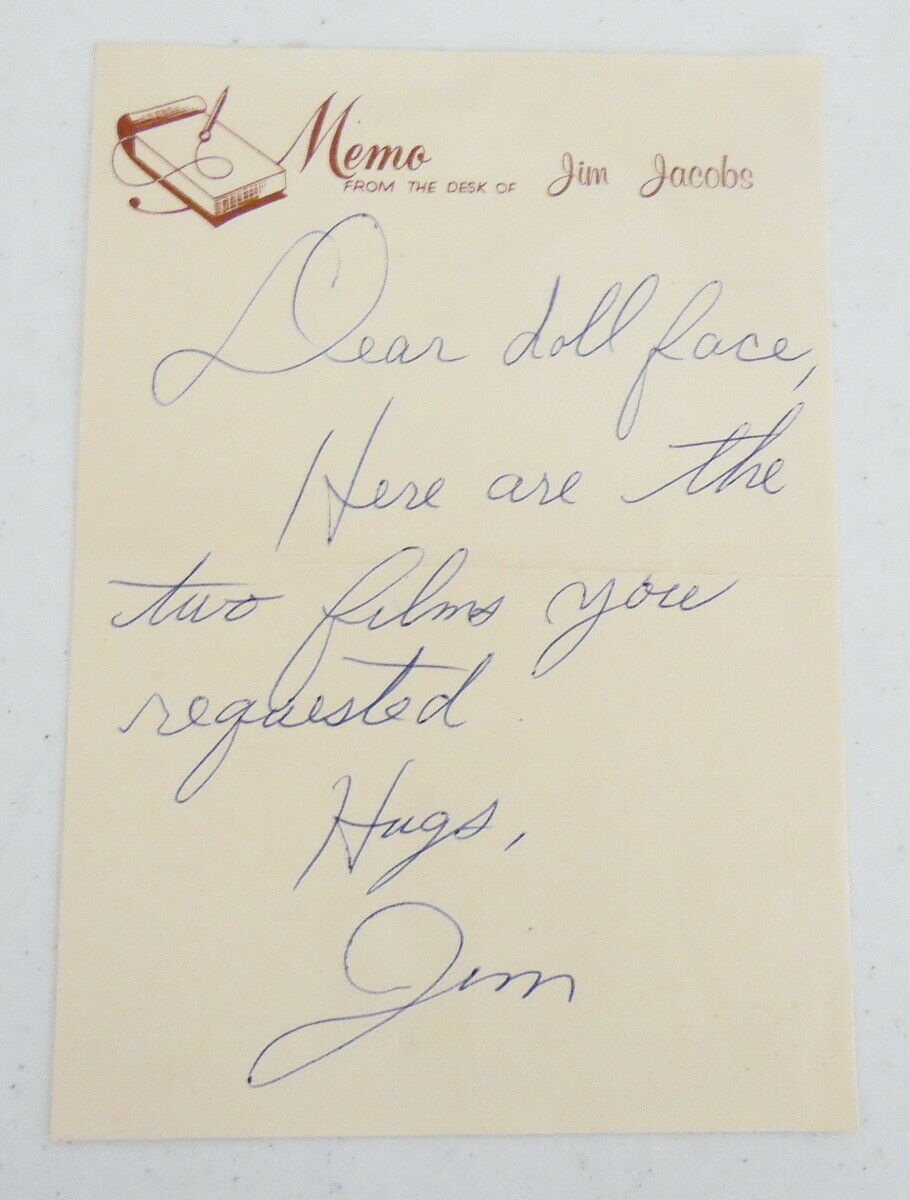 Memo
FROM THE DESK OF Jim Jacobs
Dear doll face,
Here are the
two films you
requested
Hugs,
Jim